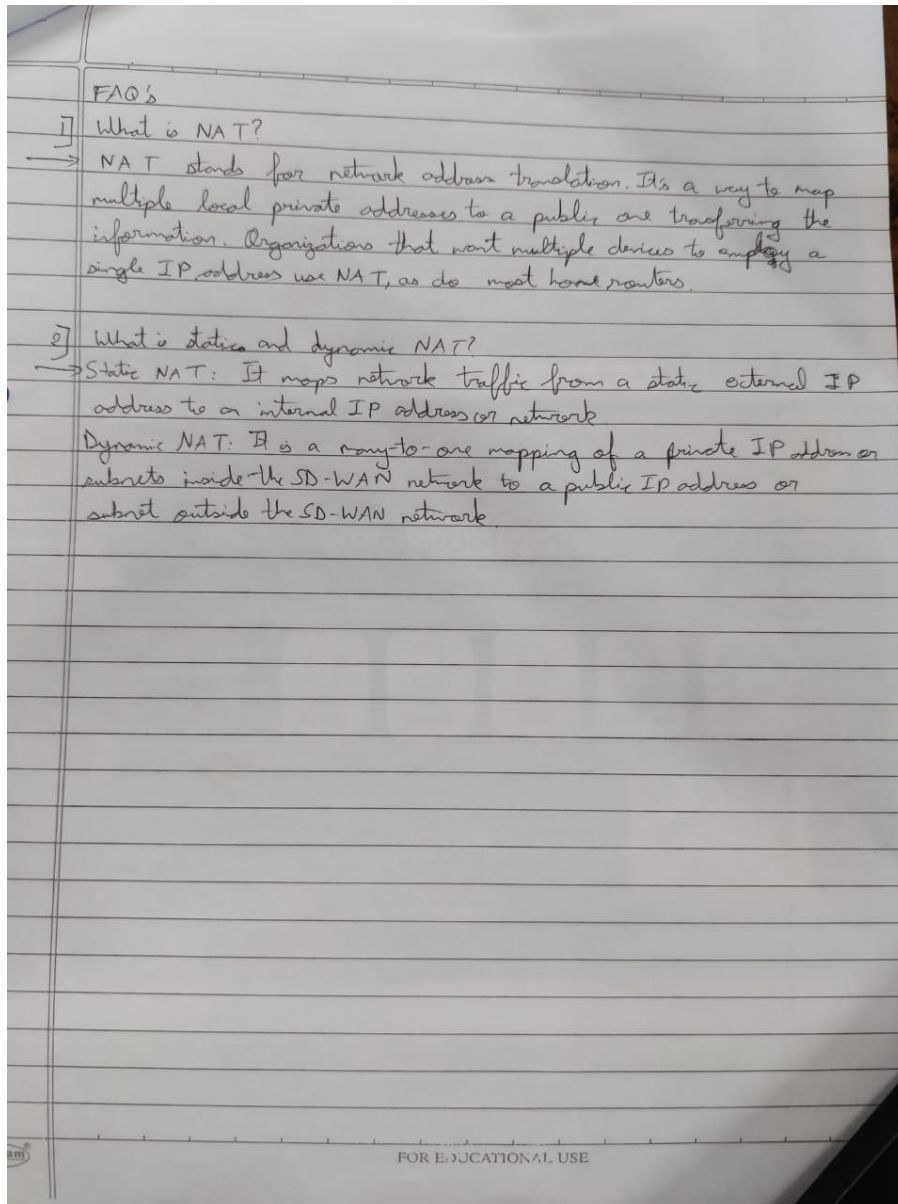 FAQ's
1] What is NAT?
→ NAT stands for network address translation. It's a way to map
multiple local private addresses to a public one trasferring the
information. Organizations that want multiple devices to employ a
single IP address use NAT, as do most home routers.
2] What is static and dynamic NAT?
→ Static NAT: It maps network traffic from a static external IP
address to an internal IP address or network
Dynamic NAT: It is a many-to-one mapping of a private IP address or
subnets inside the SD-WAN network to a public IP address or
subnet outside the SD-WAN network.
am
FOR EDUCATIONAL USE